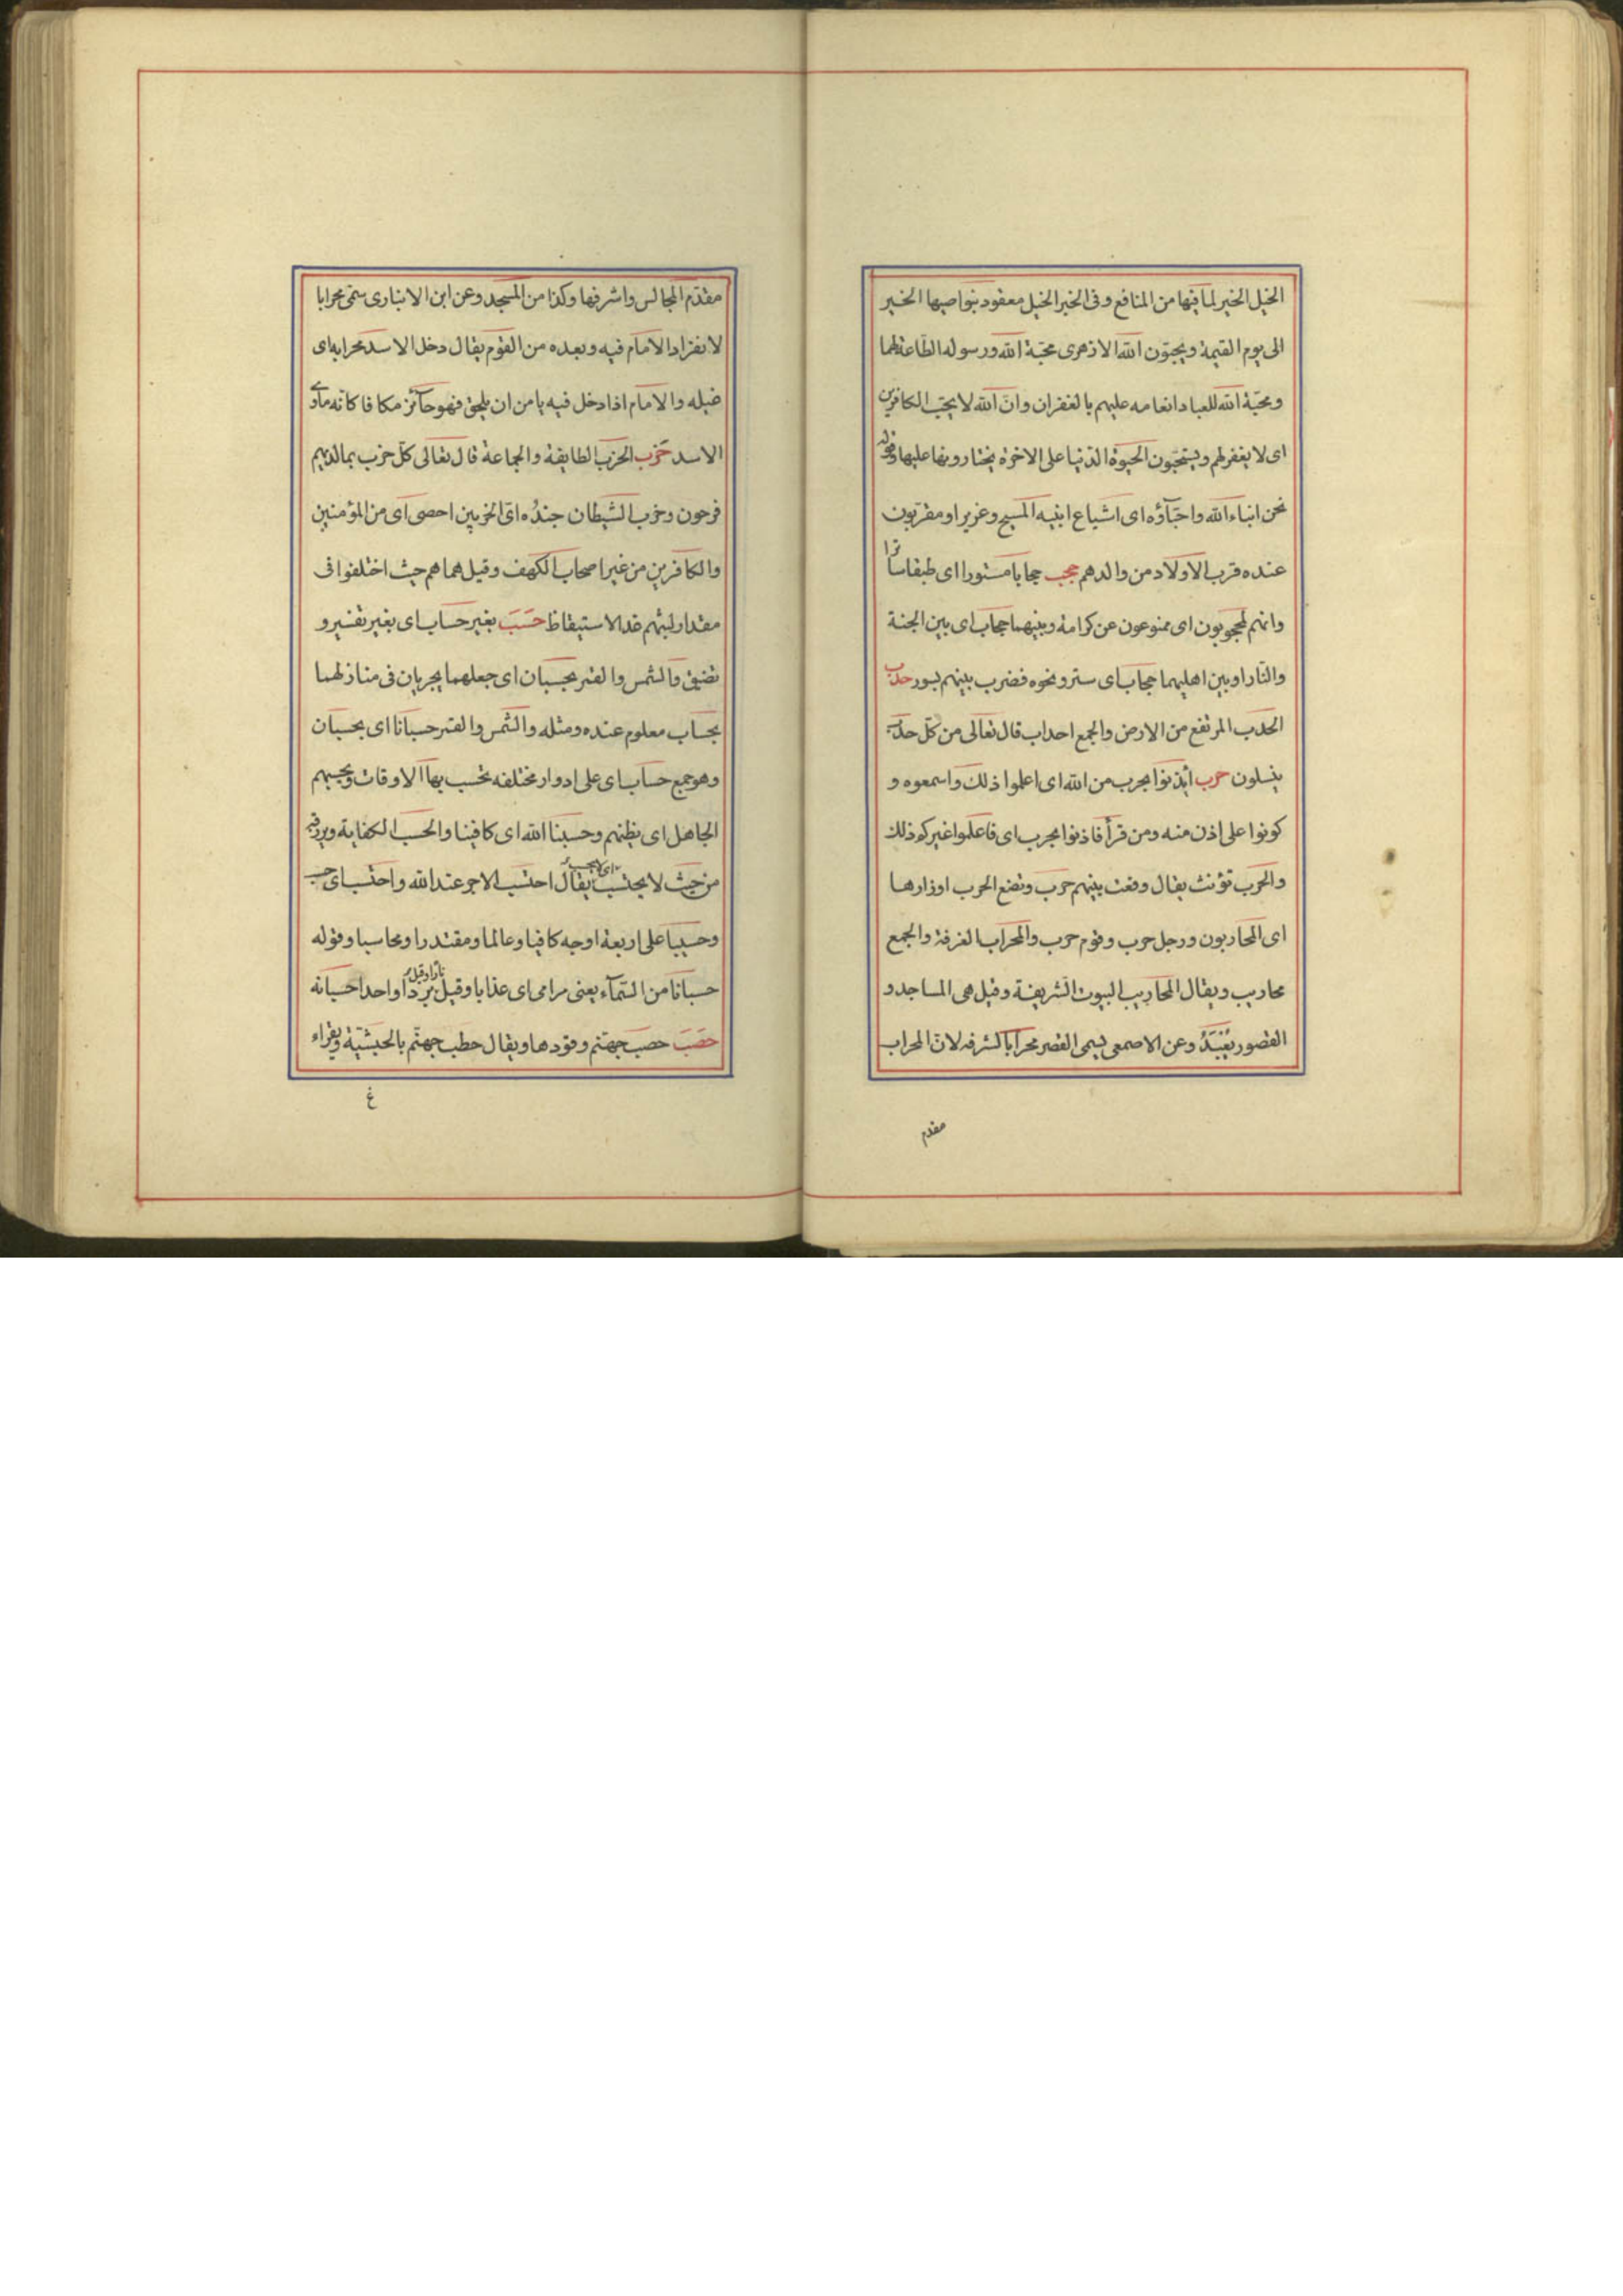 الخيل الخير لما فيها من المنافع وفى الخبر الخيل معقود بنواصيها الخير
الى يوم القيمة ويحبّون الله الازهرى محبّة الله ورسوله الطاعة لهما
ومحبّة الله للعباد انعامه عليهم بالغفران وانّ الله لا يحبّ الكافرين
اى لا يغفر لهم ويستحبّون الحيوة الدّنيا على الاخرة يختارونها عليها وقوله
نحن ابناء الله واحبّآؤه اى اشياع ابنيه المسيح وعزير او مقربّون
عنده قرب الاولاد من والدهم حجب حجابا مستورا اى طبقا ساترا
وانّهم لمحجوبون اى ممنوعون عن كرامة وبينهما حجاب اى بين الجنة
والنّار او بين اهليهما حجاب اى ستر ونحوه فضرب بينهم بسور حدب
الحدب المرتفع من الارض والجمع احداب قال تعالى من كلّ حدب
ينسلون حرب أيذنوا بحرب من الله اى اعلموا ذلك واسمعوه و
كونوا على إذن منه ومن قرأ فاذنوا بحرب اى فاعلموا غيركم ذلك
والحرب تؤنث يقال وقعت بينهم حرب وتضع الحرب اوزارها
اى المحاربون ورجل حرب وقوم حرب والمحراب الغرفة والجمع
محاريب ويقال المحاريب البيوت الشّريفة وقيل هى المساجد و
القصور وعن الاصمعى يسمى القصر محرابا لشرفه لانّ المحراب
مقدم
مقدّم المجالس واشرفها وكذا من المسجد وعن ابن الانبارى سمّى محرابا
لانفراد الامام فيه وبعده من القوم يقال دخل الاسد محرابه اى
غيله والامام اذا دخل فيه يامن ان يلحق فهو حآئز مكانا كانّه ماوى
الاسد حزب الحزب الطايفة والجماعة قال تعالى كلّ حزب بما لديهم
فرحون وحزب الشيطان جنده اىّ الحزبين احصى اى من المؤمنين
والكافرين من غير اصحاب الكهف وقيل هما هم حيث اختلفوا فى
مقدار لبثهم عند الاستيقاظ حسب بغير حساب اى بغير تقتير و
تضيق والشمس والقمر بحسبان اى جعلهما يجريان فى منازلهما
بحساب معلوم عنده ومثله والشمس والقمر حسبانا اى بحسبان
وهو جمع حساب اى على ادوار مختلفه تحسب بها الاوقات ويحسبهم
الجاهل اى يظنهم وحسبنا الله اى كافينا والحسب الكفاية ويرزقه
من حيث لا يحتسب يقال احتسب الاجر عند الله واحتسب اى حسب
وحسيبا على اربعة اوجه كافيا وعالما ومقتدرا ومحاسبا وقوله
حسبانا من السّمآء يعنى مرامى اى عذابا وقيل نارا وقيل بردا واحدها حسبانه
حصب حصب جهنّم وقودها ويقال حطب جهنّم بالحبشيّة ويقراء
غ